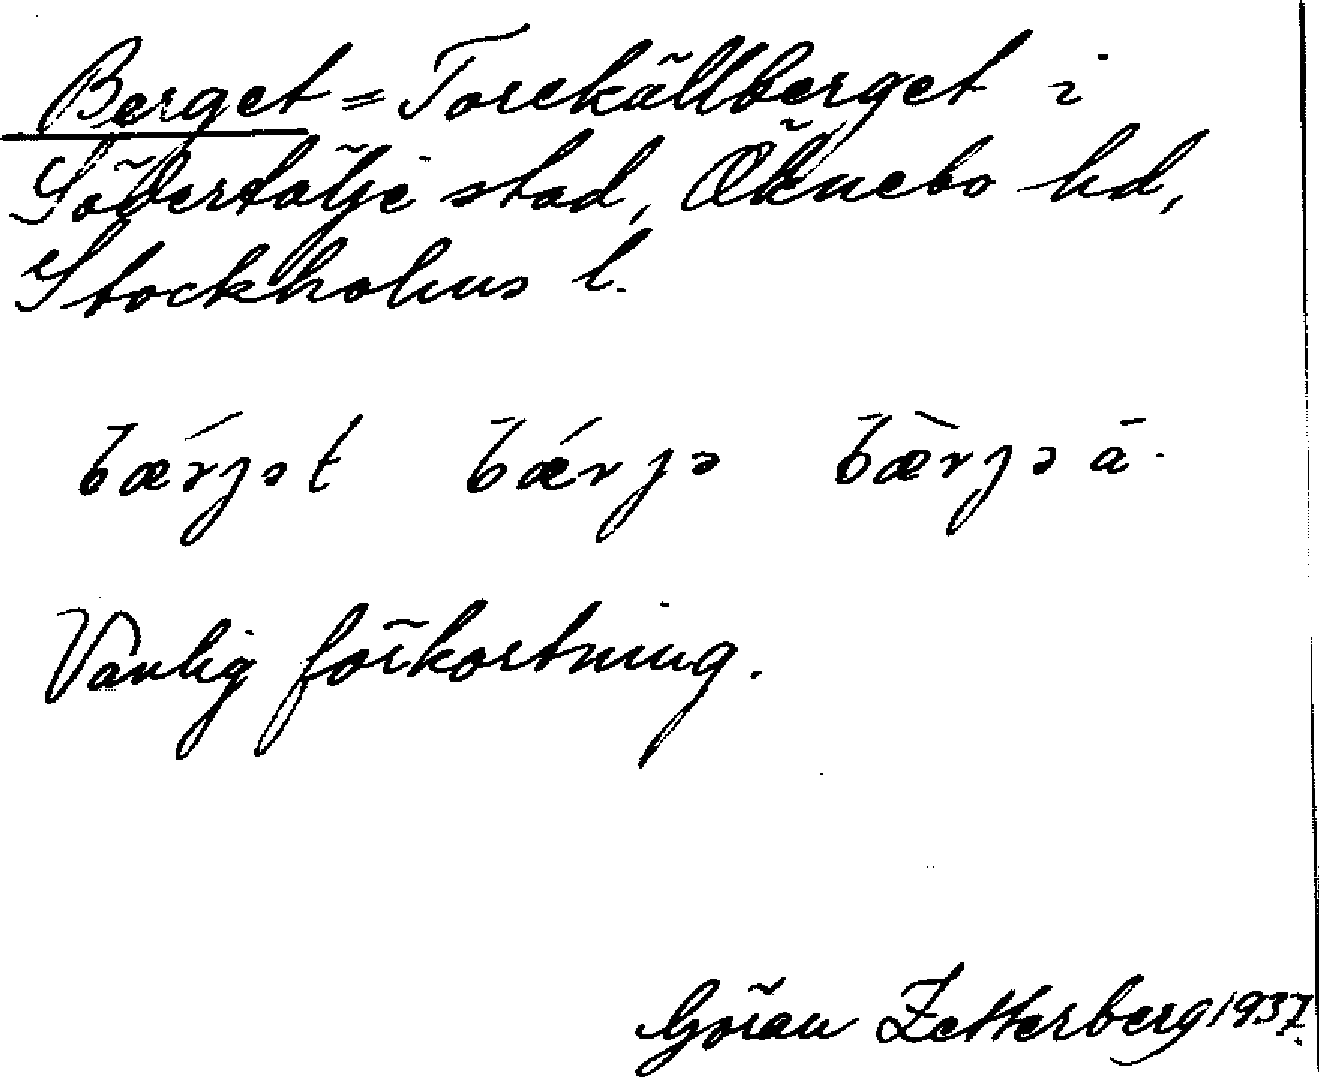 Berget = Torekällberget i
Södertälje stad, Öknebo hd,
Stockholms l.
bǽrjət bǽrjə bæ̀rjə å-
Vanlig förkortning.
Göran Zetterberg 1937.